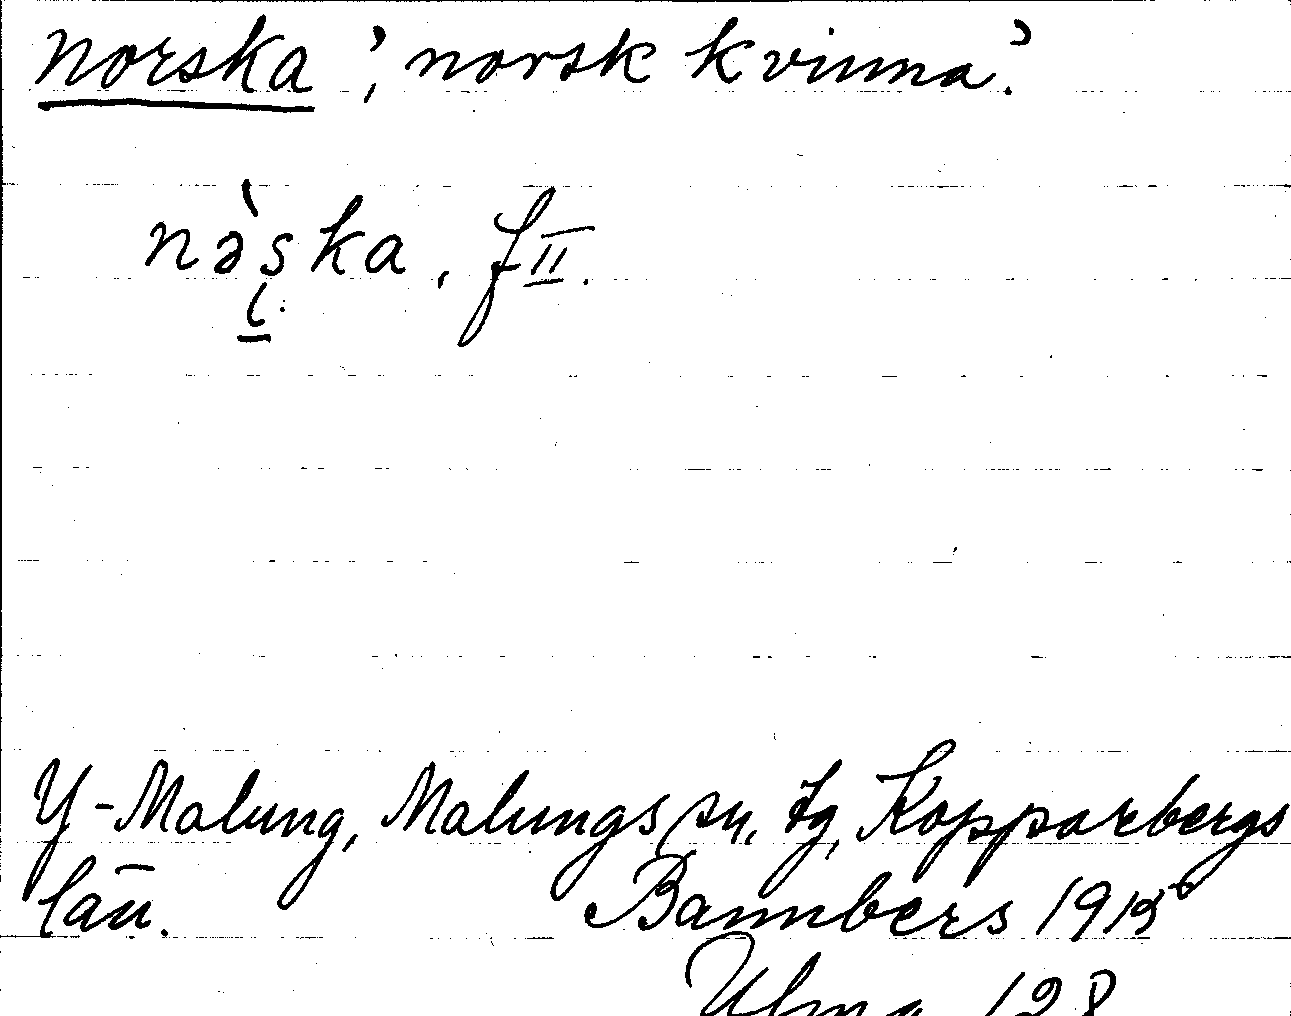 norska ', norsk kvinna'.
nə̀ṣka, f II.
ɩ.
Y-Malung, Malungs sn, tg, Kopparbergs
län. Bannbers 1915
Ulma 128